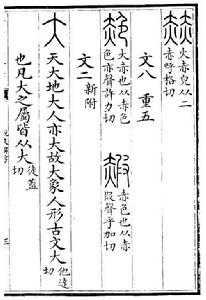 赫 火赤皃从二
赤呼格切
文八 重五
赩 大赤也从赤色
色亦聲許力切
赮 赤色也从赤
叚聲乎加切
文二 新附
大 天大地大人亦大故大象人形古文大 他達切
也凡大之屬皆从大 徒蓋切